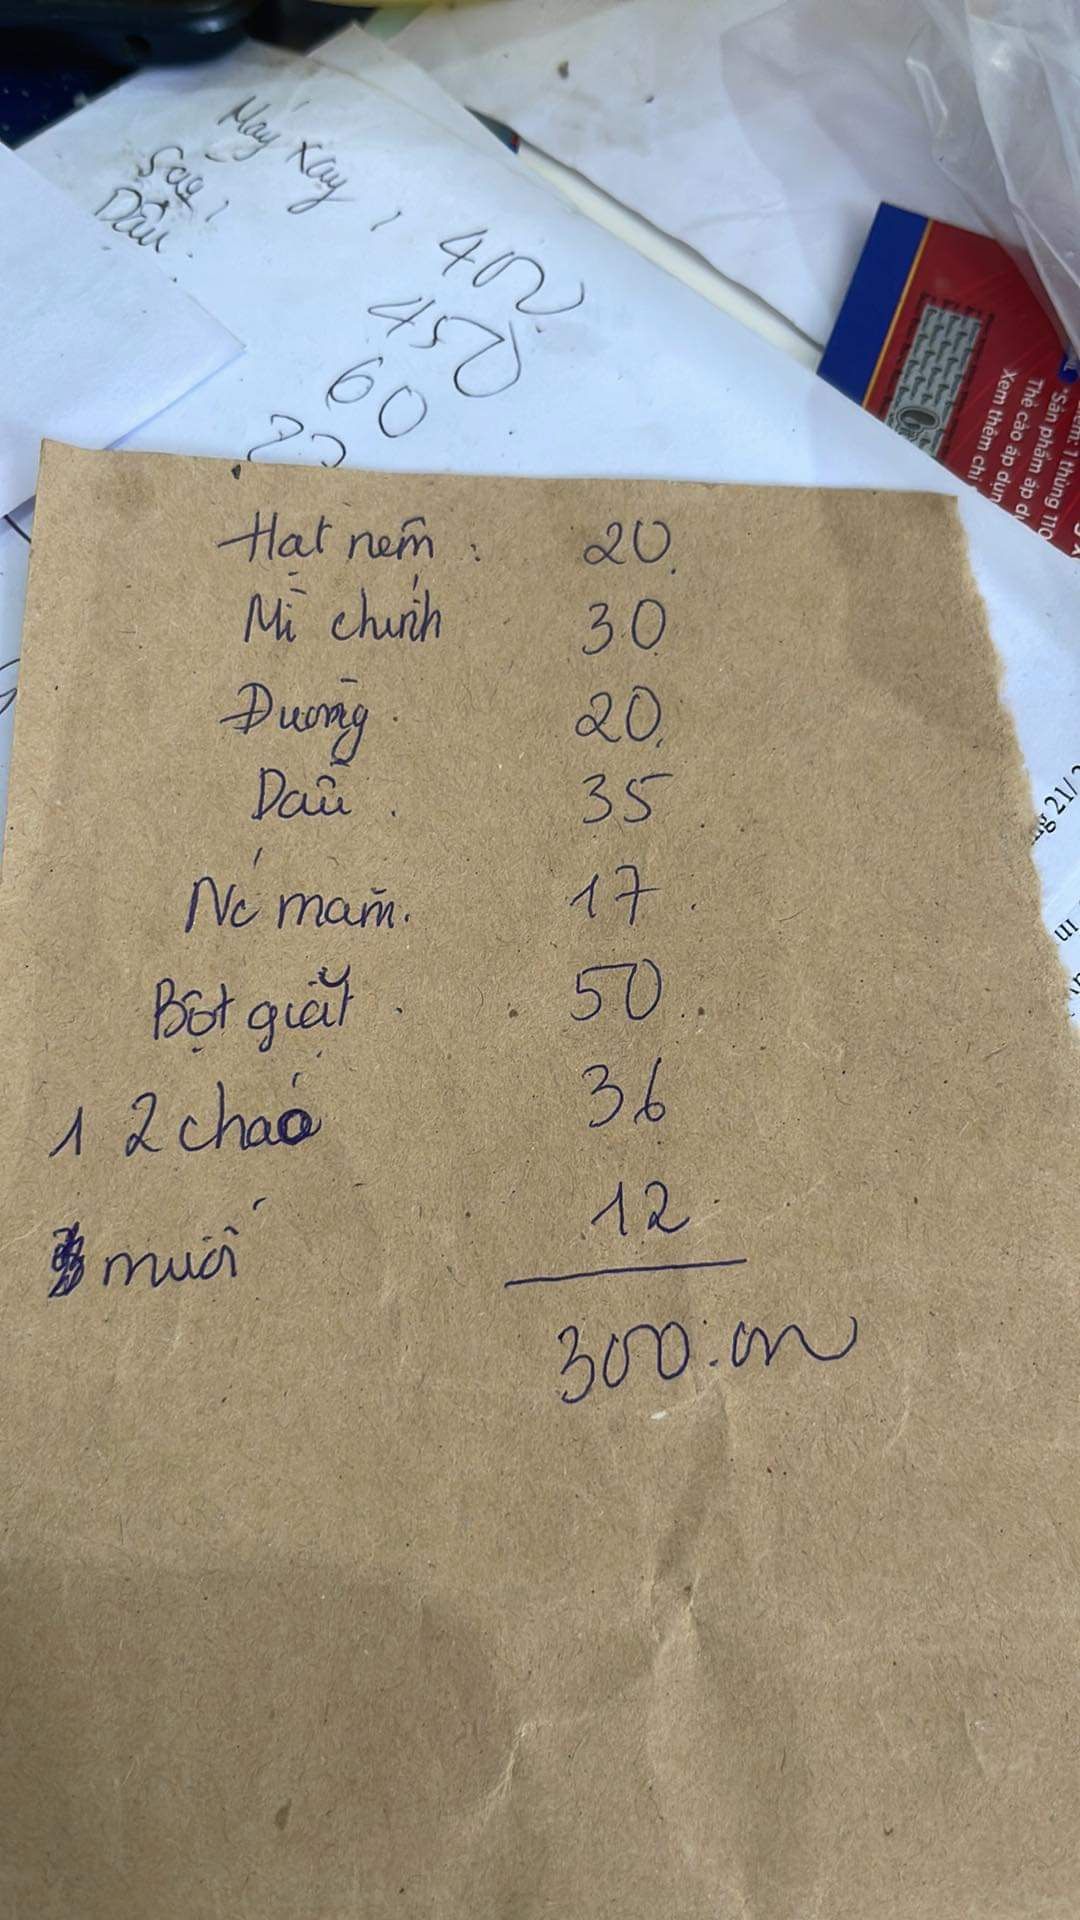 Máy xay, 400
Sạc, 450
Dầu. 60
Hạt nêm : 20.
Mì chính 30
Đường. 20.
Dầu. 35
Nc mắm. 17.
Bột giặt. 50.
1 2 chảo 36
muối 12
300.000
*Sản phẩm áp dụ
Thẻ cào áp dụn
Xem thêm chi
ng 21/